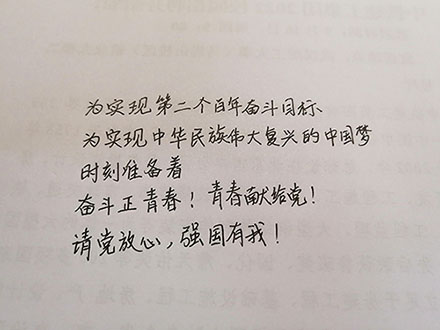 为实现第二个百年奋斗目标、
为实现中华民族伟大复兴的中国梦
时刻准备着
奋斗正青春！青春献给党！
请党放心，强国有我！